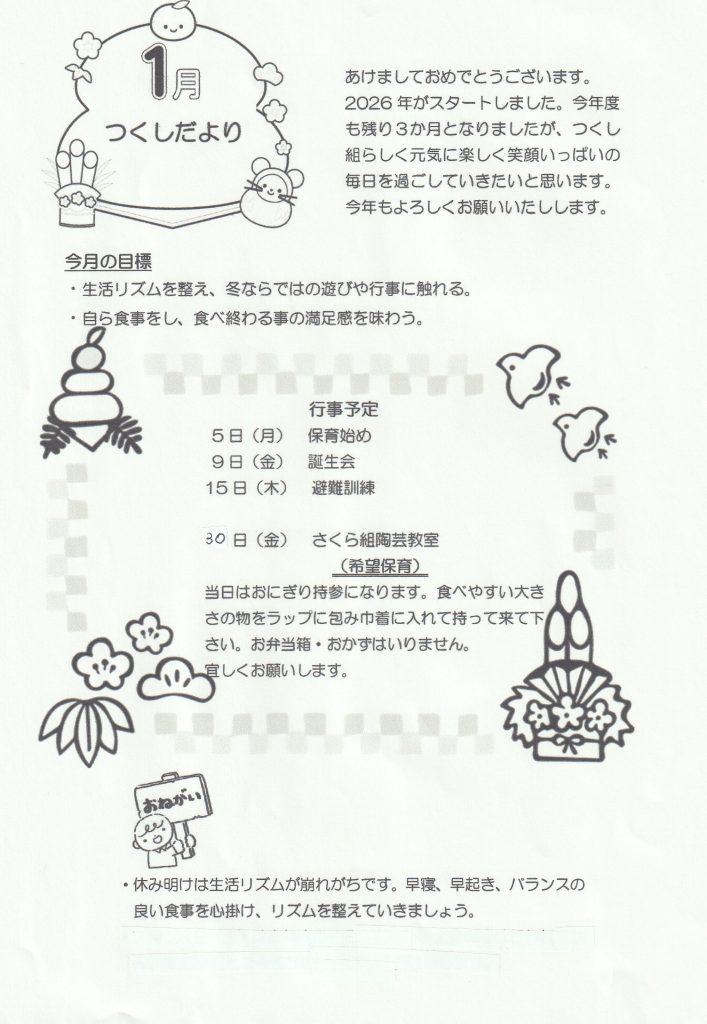 1月
つくしだより
あけましておめでとうございます。
2026年がスタートしました。今年度
も残り3か月となりましたが、つくし
組らしく元気に楽しく笑顔いっぱいの
毎日を過ごしていきたいと思います。
今年もよろしくお願いいたしします。
今月の目標
・生活リズムを整え、冬ならではの遊びや行事に触れる。
・自ら食事をし、食べ終わる事の満足感を味わう。
行事予定
5日（月） 保育始め
9日（金） 誕生会
15日（木） 避難訓練
30日（金） さくら組陶芸教室
（希望保育）
当日はおにぎり持参になります。食べやすい大き
さの物をラップに包み巾着に入れて持って来て下
さい。お弁当箱・おかずはいりません。
宜しくお願いします。
おねがい
・休み明けは生活リズムが崩れがちです。早寝、早起き、バランスの
良い食事を心掛け、リズムを整えていきましょう。